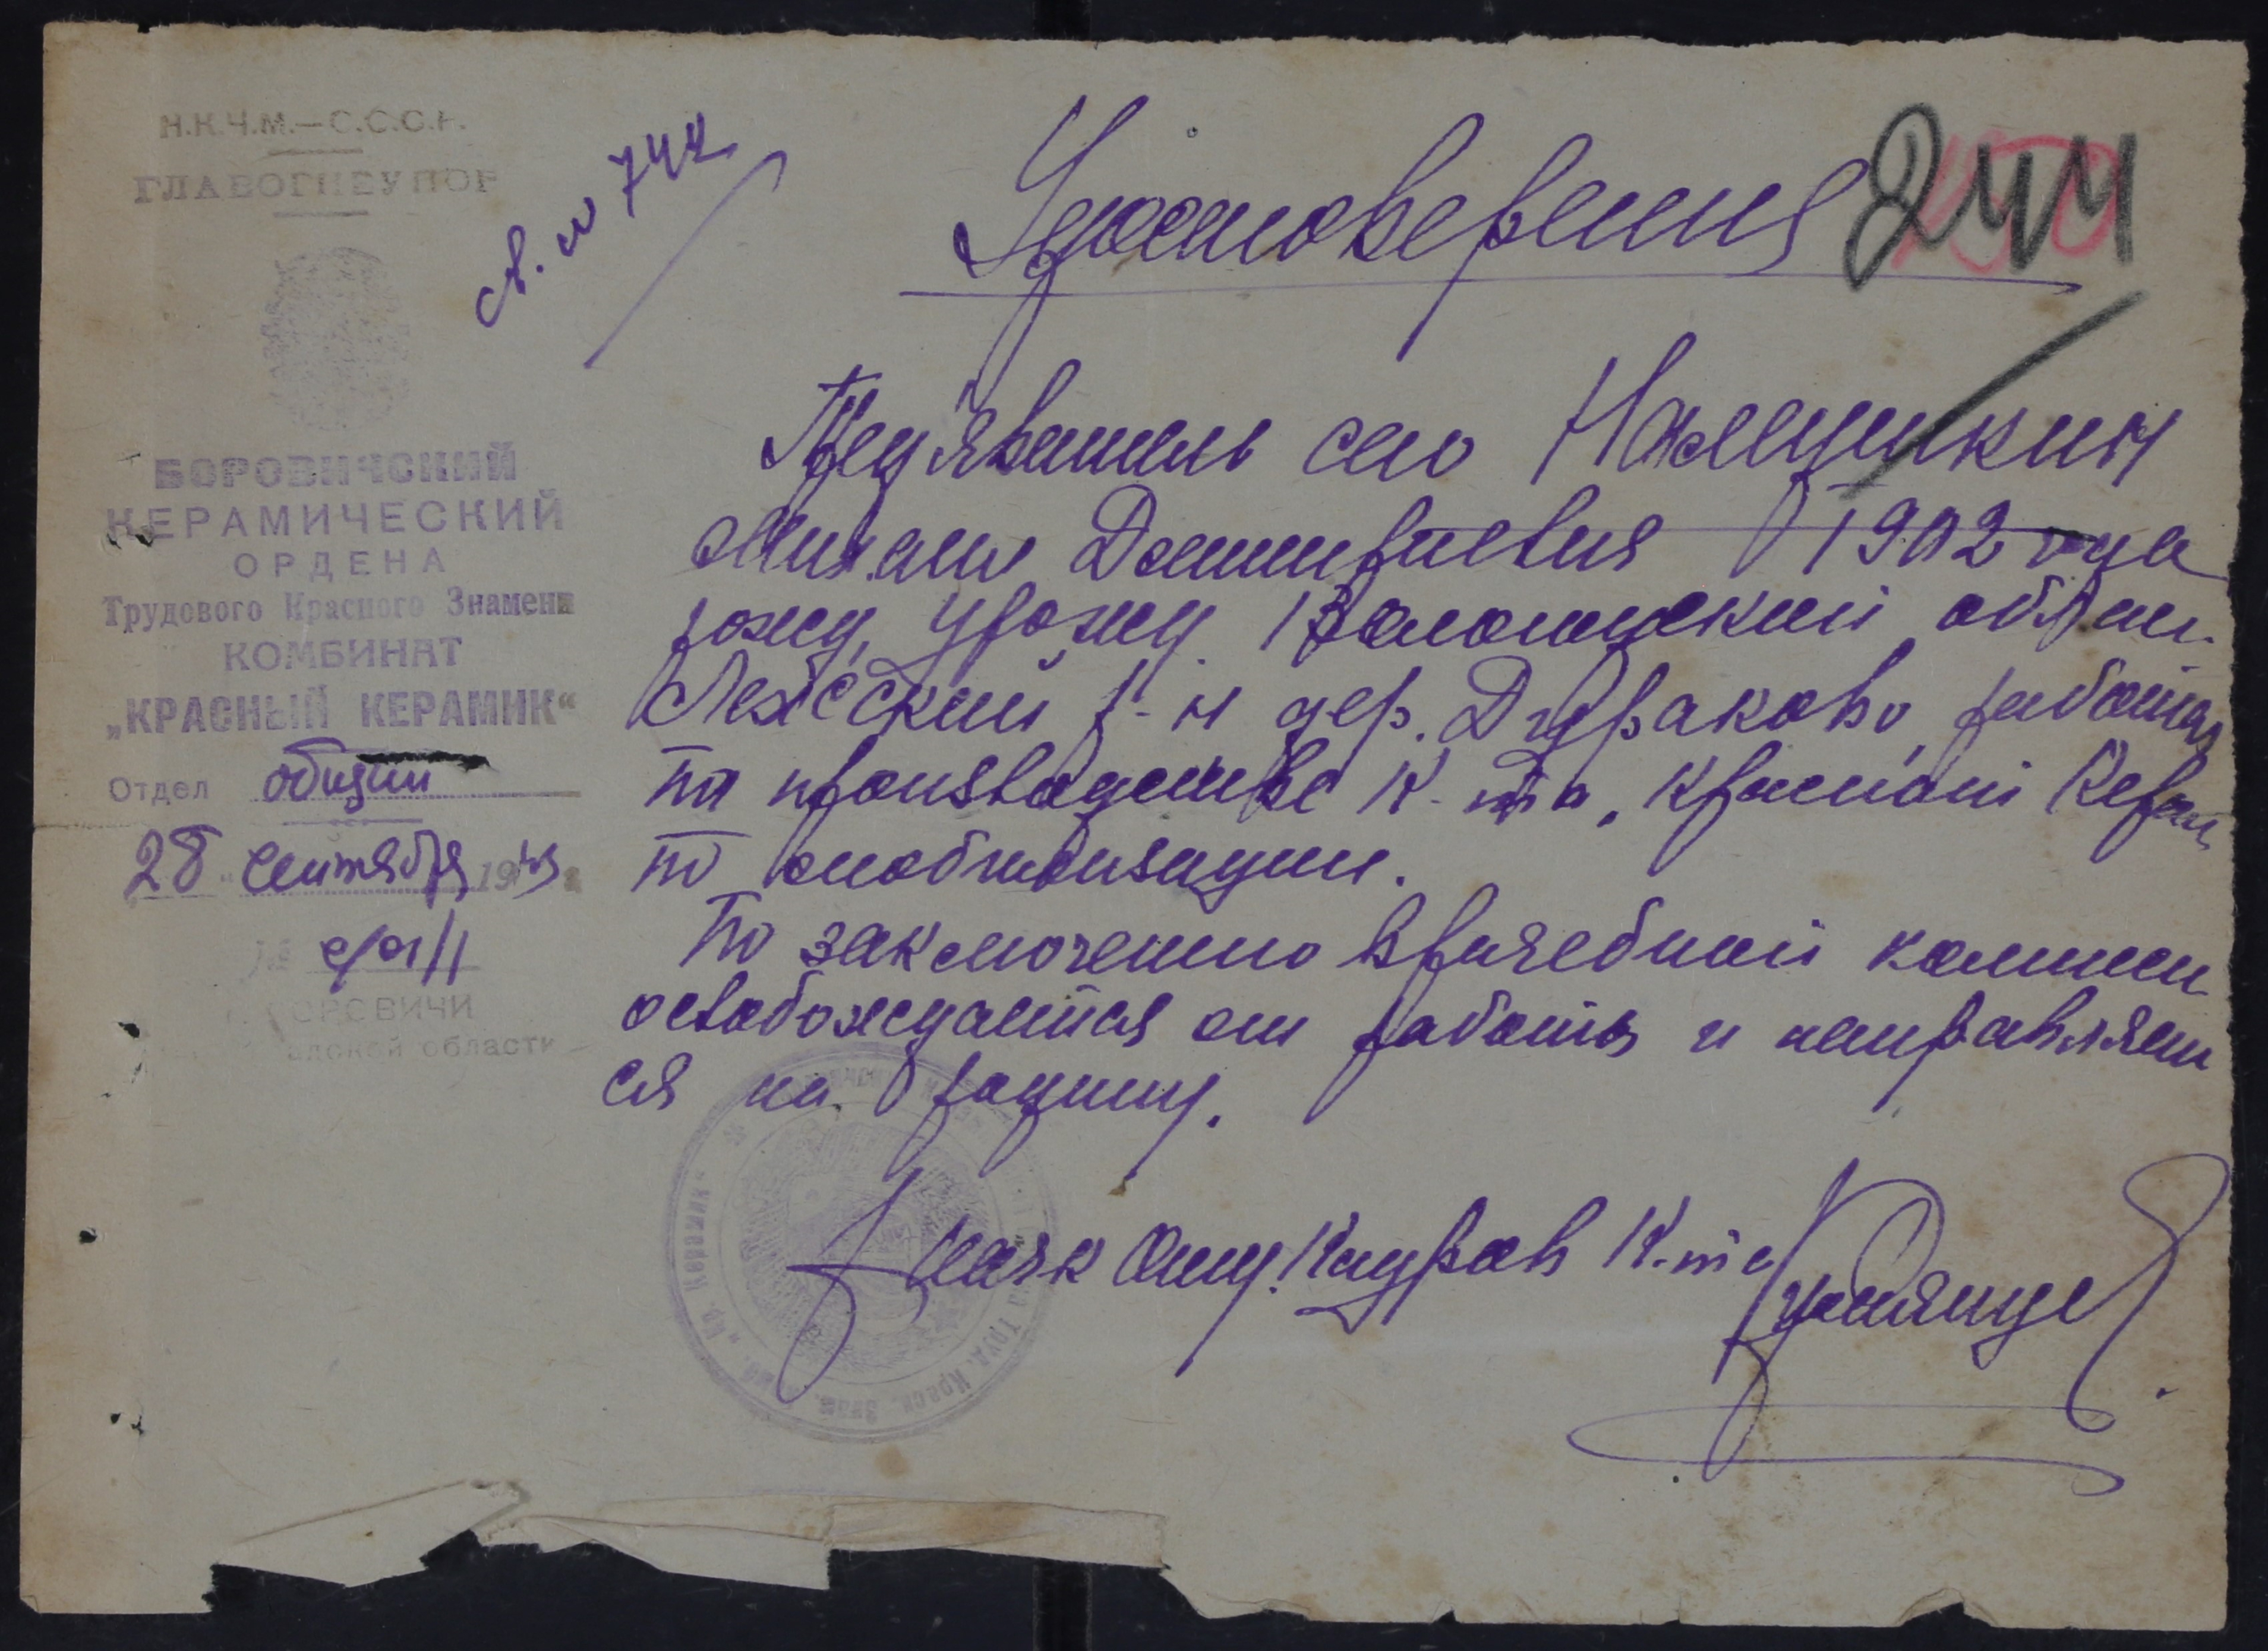 Н.К.Ч.М.—С.С.С.Р.
ГЛАВОГНЕУПОР
БОРОВИЧСКИЙ
КЕРАМИЧЕСКИЙ
ОРДЕНА
Трудового Красного Знамени
КОМБИНАТ
„КРАСНЫЙ КЕРАМИК“
Отдел общий
28 сентября 1943
БОРОВИЧИ
адской области
св. № 744
Удостоверения
244
Предявитель сего
Михаил Дмитриевич 1902 года
рожд, урожд. Вологодский област.
Лежский р-н дер. Дураково, работал
на производстве К-та, Красный Керам
по мобилизации.
По заключению врачебной комисси
освобождается от работы и направляет
ся на родину.
Нач Отд. Кадров К-та